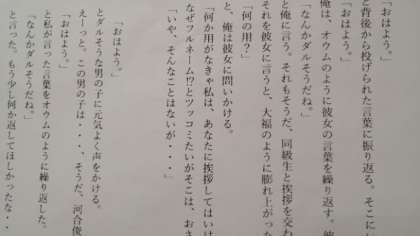 「おはよう。」
と背後から投げられた言葉に振り返る。そこにい
「おはよう。」
俺は、オウムのように彼女の言葉を繰り返す。
「なんかダルそうだね。」
と俺に言う。それもそうだ、同級生と挨拶を交わ
それを彼女に言うと、大福のように膨れ上がった
「何の用？」
と、俺は彼女に問いかける。
「何か用がなきゃ私は、あなたに挨拶してはいけ
なぜフルネーム!?とツッコミたいがそこは、おさ
「いや、そんなことはないが・・・」
「おはよう。」
とダルそうな男の子に元気よく声をかける。
えーっと。この男の子は・・・、そうだ、河合俊
「おはよう。」
と私が言った言葉をオウムのように繰り返した。
「なんかダルそうだね。」
と言った。もう少し何か返してほしかったな・・